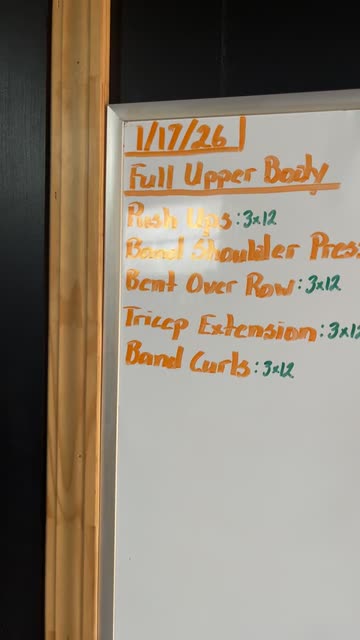 1/17/26
Full Upper Body
Push Ups: 3x12
Band Shoulder Press
Bent Over Row: 3x12
Tricep Extension: 3x12
Band Curls: 3x12